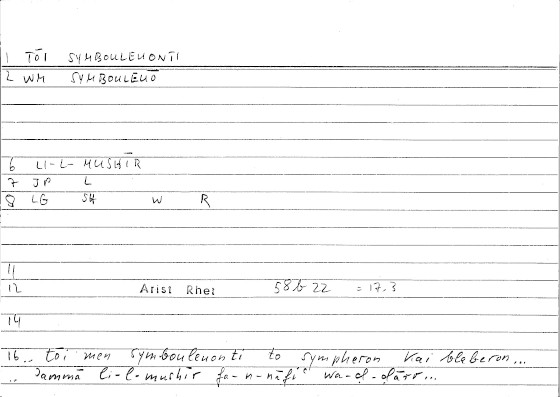 1 TŌI SYMBOULEUONTI
2 WM SYMBOULEUŌ
6 LI-L-MUSHĪR
7 JP L
8 LG SH W R
11
12 Arist Rhet 58b22 =17.3
14
16.. tōi men symbouleuonti to sympheron kai blaberon...
.. ʾammā li-l-mushīr fa-n-nāfiʿ wa-ḍ-ḍārr...